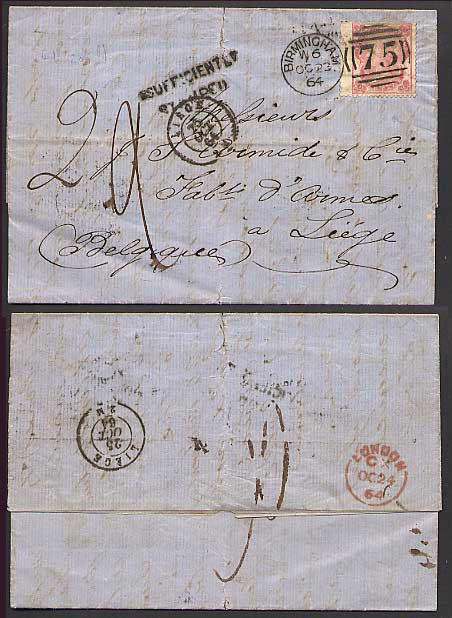 BIRMINGHAM
W6
OC 23
64
75
INSUFFICIENTLY
STAMPED
LIEGE
Messieurs
& Cie
Fabts d'Armes
à Liége
Belgique
LIEGE
25
OCT
64
LONDON
OC 24
64